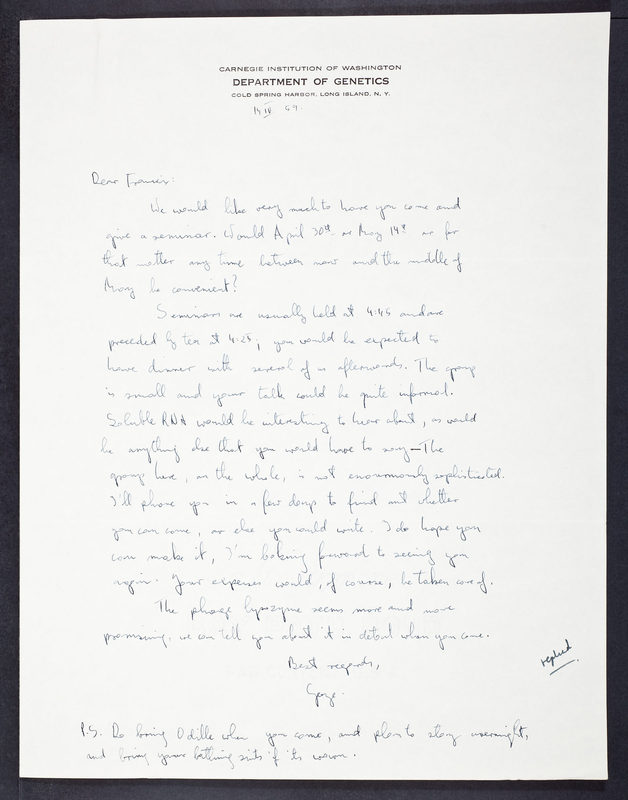 CARNEGIE INSTITUTION OF WASHINGTON
DEPARTMENT OF GENETICS
COLD SPRING HARBOR, LONG ISLAND, N. Y.
14 IV 59.
Dear Francis:
We would like very much to have you come and
give a seminar. Would April 30th or May 14th or for
that matter any time between now and the middle of
May be convenient?
Seminars are usually held at 4:45 and are
preceded by tea at 4:25; you would be expected to
have dinner with several of us afterwards. The group
is small and your talk could be quite informal.
Soluble RNA would be interesting to hear about, as would
be anything else that you would have to say — The
group here, on the whole, is not enourmously sophisticated.
I'll phone you in a few days to find out whether
you can come, or else you could write. I do hope you
can make it, I'm looking forward to seeing you
again. Your expenses would, of course, be taken care of.
The phage lysozyme seems more and more
promising, we can tell you about it in detail when you come.
Best regards,
George.
replied
P.S. Do bring Odille when you come, and plan to stay overnight,
and bring your bathing suits if its warm.